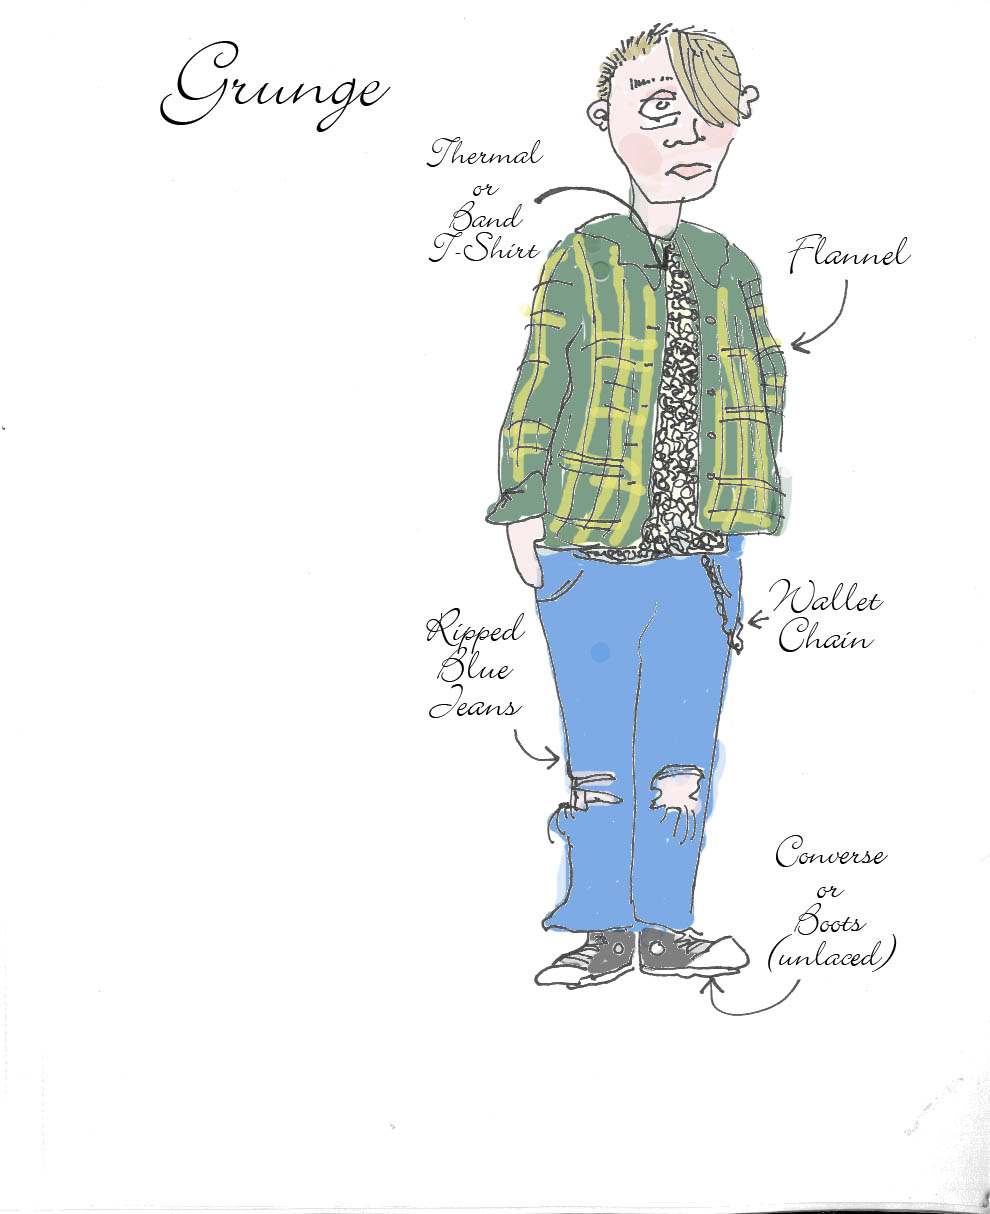 Grunge
Thermal
or
Band
T-Shirt
Flannel
Wallet
Chain
Ripped
Blue
Jeans
Converse
or
Boots
(unlaced)